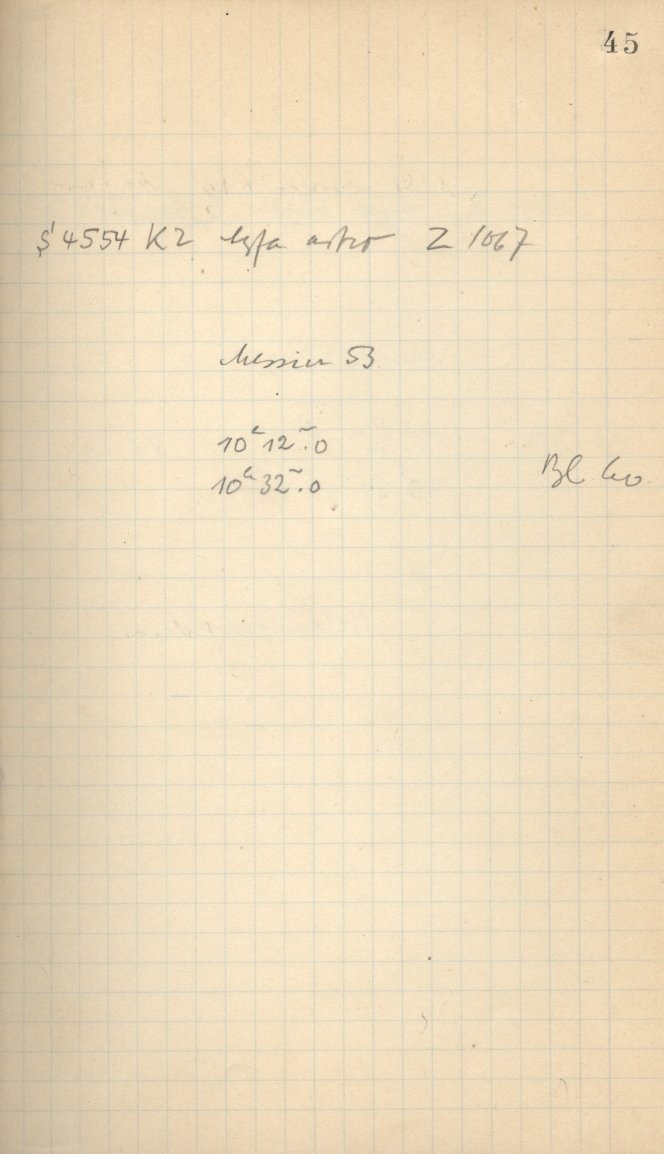 45
S 4554 K2 Agfa astro Z 1067
Messier 53
10h 12m.0
10h 32m.0
Bl 60